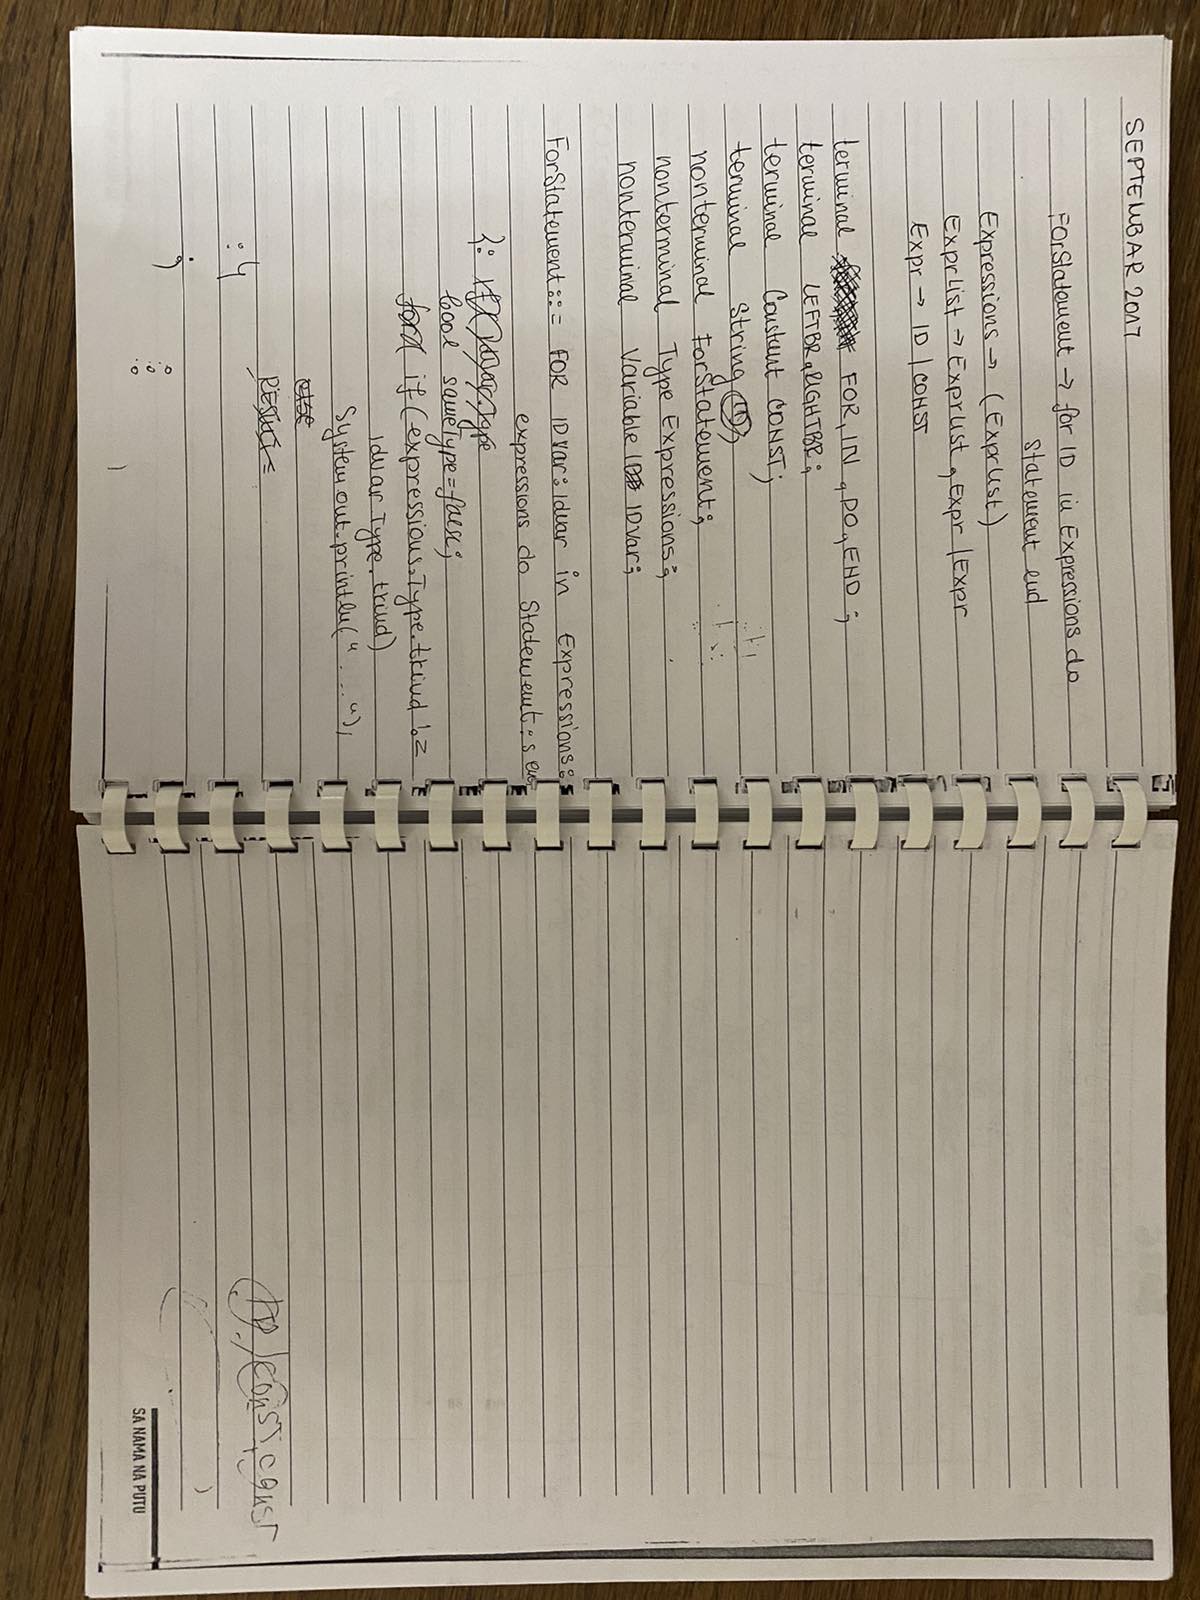 SEPTEMBAR 2017
ForStatement → for ID in Expressions do
Statement end
Expressions → (ExprList)
ExprList → ExprList, Expr | Expr
Expr → ID | CONST
terminal FOR, IN, DO, END;
terminal LEFTBR, RIGHTBR;
terminal Constant CONST;
terminal String ID;
nonterminal ForStatement;
nonterminal Type Expressions;
nonterminal Variable IDvar;
ForStatement::= FOR IDvar:idvar in Expressions:
expressions do Statement:s
{:
bool sameType=false;
if (expressions.Type.tkind !=
idvar.Type.tkind)
System.out.println("....");
else
:}
;
ID, CONST, CONST
SA NAMA NA PUTU